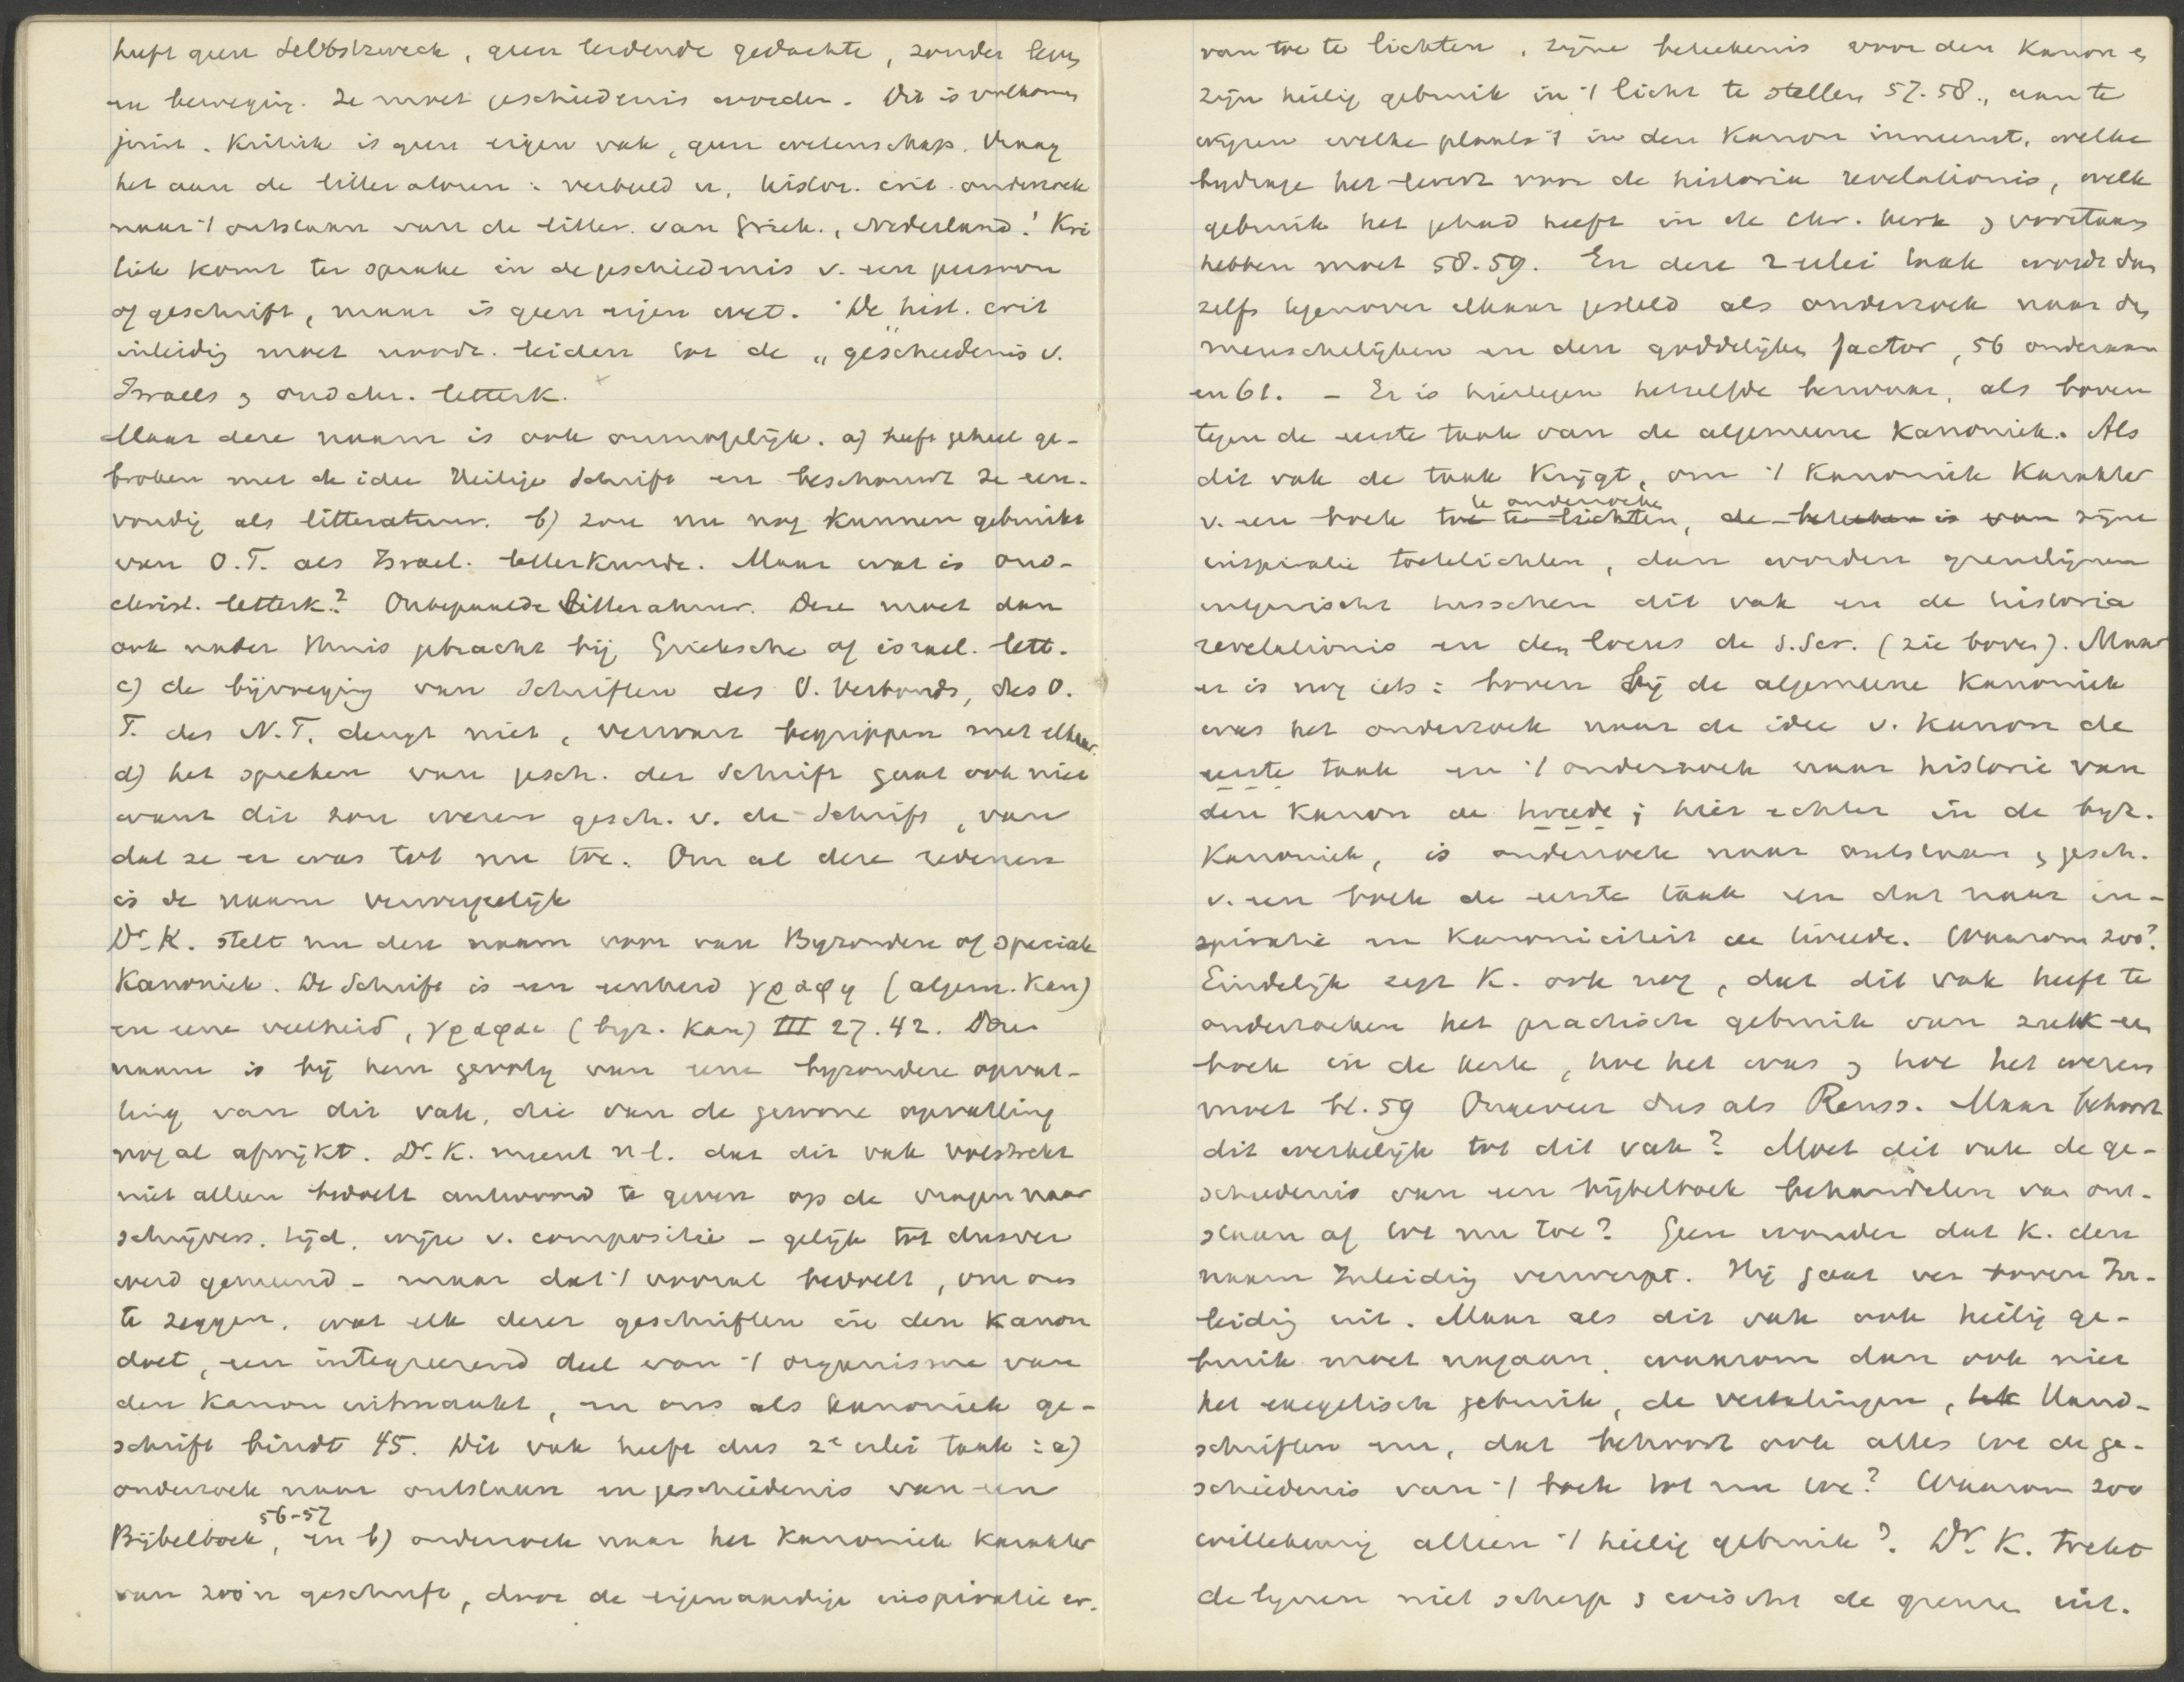 heeft geen Selbstzweck, geen leidende gedachte, zonder leven
en beweging. Ze moet geschiedenis worden. Dit is volkomen
juist. Kritiek is geen eigen vak, geen wetenschap. Vraag
het aan de litteratoren: verbeeld u, histor. crit. onderzoek
naar 't ontstaan van de litter. van Griek., Nederland! Kri
tiek komt ter sprake in de geschiedenis v. een persoon
of geschrift, maar is geen eigen wet. De hist. crit
inleidig moet noodz. leiden tot de „geschiedenis v.
Israels & oudchr. letterk.
Maar deze naam is ook onmogelijk. a) heeft geheel ge-
broken met de idee Heilige Schrift en beschouwt ze een-
voudig als litteratuur. b) zou nu nog kunnen gebruikt
van O.T. als Israel. letterkunde. Maar wat is oud-
christ. letterk.? Onbepaalde litteratuur. Deze moet dan
ook nader thuis gebracht bij Grieksche of israel. lett.
c) de bijvoeging van Schriften des O. Verbonds, des O.
T. des N.T. deugt niet, verwart begrippen met elkaar.
d) het spreken van gesch. der Schrift gaat ook niet
want dit zou wezen gesch. v. de Schrift, van
dat ze er was tot nu toe. Om al deze redenen
is de naam verwerpelijk
Dr. K. stelt nu den naam voor van Byzondere of speciale
Kanoniek. De Schrift is een eenheid γραφη (algem. Kan)
en eene veelheid, γραφαι (byz. Kan) III 27. 42. Deze
naam is bij hem gevolg van eene byzondere opvat-
ting van dit vak, die van de gewone opvatting
nog al afwijkt. Dr. K. meent n-l. dat dit vak volstrekt
niet alleen bedoelt antwoord te geven op de vragen naar
schrijvers, tijd, wijze v. compositie - gelijk tot dusver
werd gemeend - maar dat 't vooral bedoelt, om ons
te zeggen, wat elk dezer geschriften in den Kanon
doet, een integreerend deel van 't organisme van
den Kanon uitmaakt, en ons als kanoniek ge-
schrift bindt 45. Dit vak heeft dus 2e erlei taak: a)
onderzoek naar ontstaan en geschiedenis van een
56-57
Bijbelboek, en b) onderzoek naar het Kanoniek karakter
van zoo'n geschrift, door de eigenaardige inspiratie er-
van toe te lichten, zijne beteekenis voor den Kanon &
zijn heilig gebruik in 't licht te stellen 57. 58., aan te
wijzen welke plaats 't in den Kanon inneemt, welke
bydrage het levert voor de historia revelationis, welk
gebruik het gehad heeft in de Chr. kerk & voortaan
hebben moet 58. 59. En deze 2 erlei taak wordt dan
zelfs tegenover elkaar gesteld als onderzoek naar den
menschelijken en den goddelijken factor, 56 onderaan
en 61. - Er is hiertegen hetzelfde bezwaar, als boven
tegen de eerste taak van de algemeene Kanoniek. Als
dit vak de taak krijgt, om 't Kanoniek Karakter
te onderzoeke
v. een boek toe te lichten, de beteeken is van zijne
inspiratie toelichten, dan worden grenslijnen
uitgewischt tusschen dit vak en de historia
revelationis en den locus de S. Scr. (zie boven). Maar
er is nog iets: boven bij de algemeene Kanoniek
was het onderzoek naar de idee v. Kanon de
eerste taak en 't onderzoek naar historie van
den Kanon de tweede; hier echter in de byz.
Kanoniek, is onderzoek naar ontstaan & gesch.
v. een boek de eerste taak en dat naar in-
spiratie en Kanoniciteit de tweede. Waarom zoo?
Eindelijk zegt K. ook nog, dat dit vak heeft te
onderzoeken het practisch gebruik van zulk een
boek in de kerk, hoe het was & hoe het wezen
moet bl. 59 Ongeveer dus als Reuss. Maar behoort
dit werkelijk tot dit vak? Moet dit vak de ge-
schiedenis van een bijbelboek behandelen van ont-
staan af tot nu toe? Geen wonder dat K. den
naam Inleidig verwerpt. Hij gaat ver boven In-
leidig uit. Maar als dit vak ook heilig ge-
bruik moet nagaan, waarom dan ook niet
het exegetisch gebruik, de vertalingen, tek Hand-
schriften enz, dat behoort ook alles tot de ge-
schiedenis van 't boek tot nu toe? Waarom zoo
willekeurig alleen 't heilig gebruik? Dr. K. trekt
de lijnen niet scherp & wischt de grenzen uit.